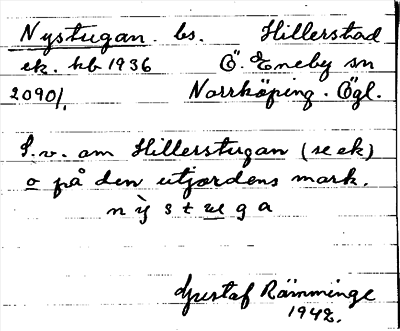 Nystugan. bs. Hillerstad
ek. kb 1936 Ö. Eneby sn
2090/. Norrköping. Ögl.
S.v. om Hillerstugan (se ek)
o på den utjordens mark.
nỳstuga
Gustaf Rämminge
1942.